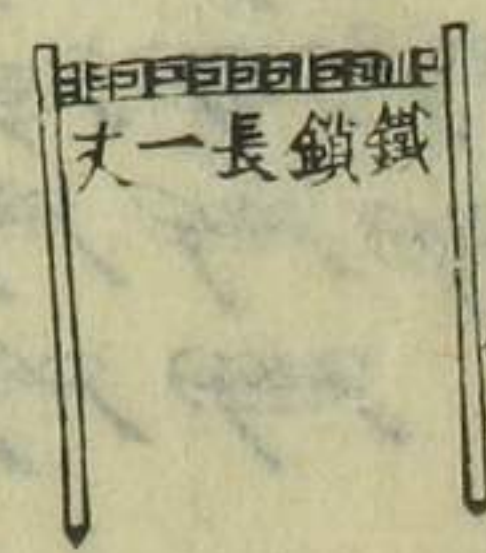 鐵鎖長一丈